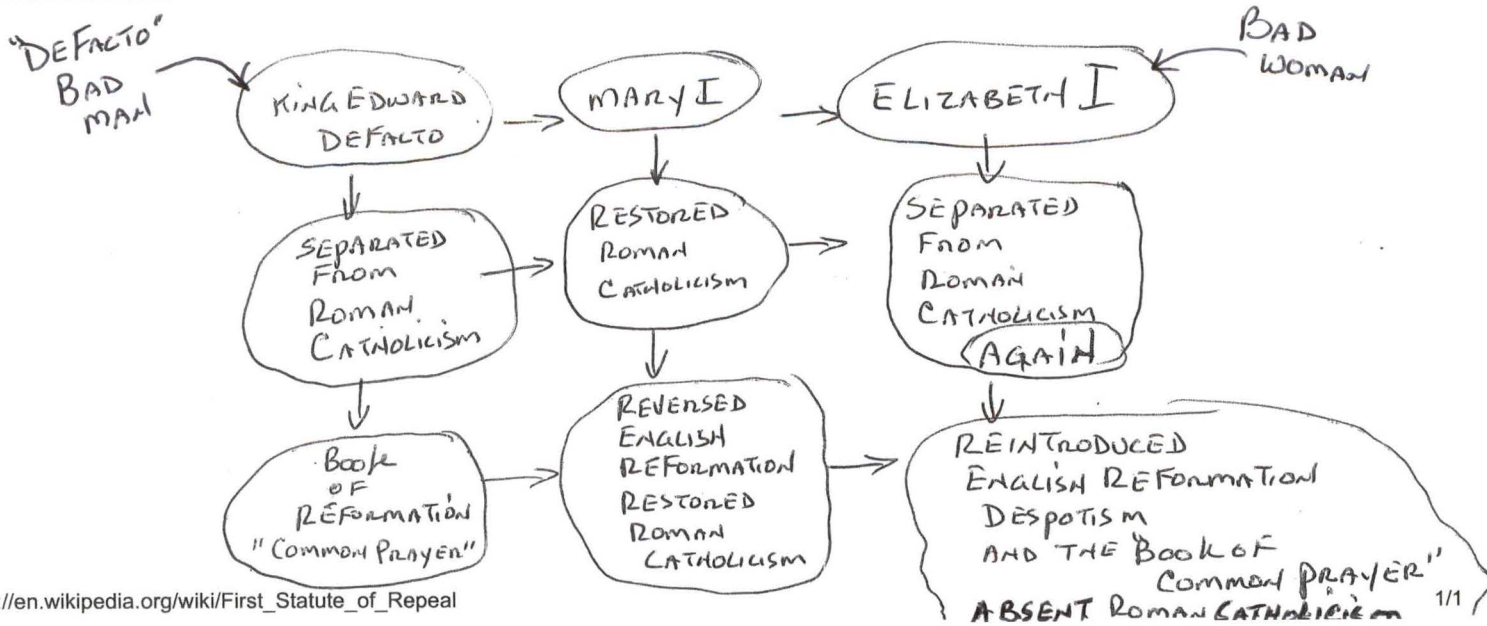 "DEFACTO"
BAD
MAN
KING EDWARD
DEFACTO
MARY I
ELIZABETH I
BAD
WOMAN
SEPARATED
FROM
ROMAN
CATHOLICISM
RESTORED
ROMAN
CATHOLICISM
SEPARATED
FROM
ROMAN
CATHOLICISM
AGAIN
Book
OF
REFORMATION
"COMMON PRAYER"
REVERSED
ENGLISH
REFORMATION
RESTORED
ROMAN
CATHOLICISM
REINTRODUCED
ENGLISH REFORMATION
DESPOTISM
AND THE "BOOK OF
COMMON PRAYER"
ABSENT ROMAN CATHOLICISM
://en.wikipedia.org/wiki/First_Statute_of_Repeal
1/1